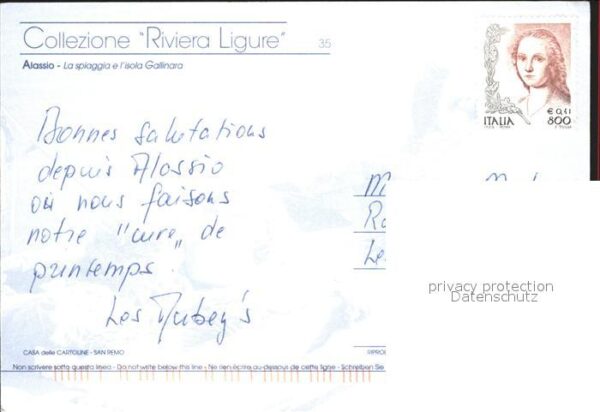 Collezione "Riviera Ligure" 35
Alassio - La spiaggia e l'isola Gallinara
€ 0,41
ITALIA 800
Bonnes salutations
depuis Alassio
où nous faisons
notre "cure" de
printemps.
Les Aubey's
privacy protection
Datenschutz
CASA delle CARTOLINE - SAN REMO
Non scrivere sotto questa linea - Do not write below this line - Ne rien écrire au-dessous de cette ligne - Schreiben Sie